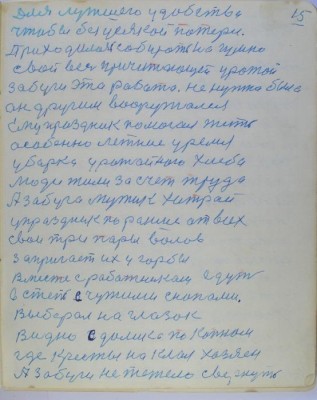 15
Для лучшего удобства
чтобы без уся кой потери.
Приходилось собирать на гумно
свой весь причитающей урожай
Забуги эта работа. не нужна была
он другим вооружался
Ему праздник помогал жить
особенно летние уремя
уборка урожайного хлеба
Люди жили за счет труда
А Забуга мужик хитрай
упраздник по раньше от всех
свои три пары волов
Запрягает их у горбы
Вместе с работником едут
В степь с чужими снопами.
Выберал на глазок
Видно с долика по копном
где кресты на клал хозяен
А Забуги не тежело свернуть